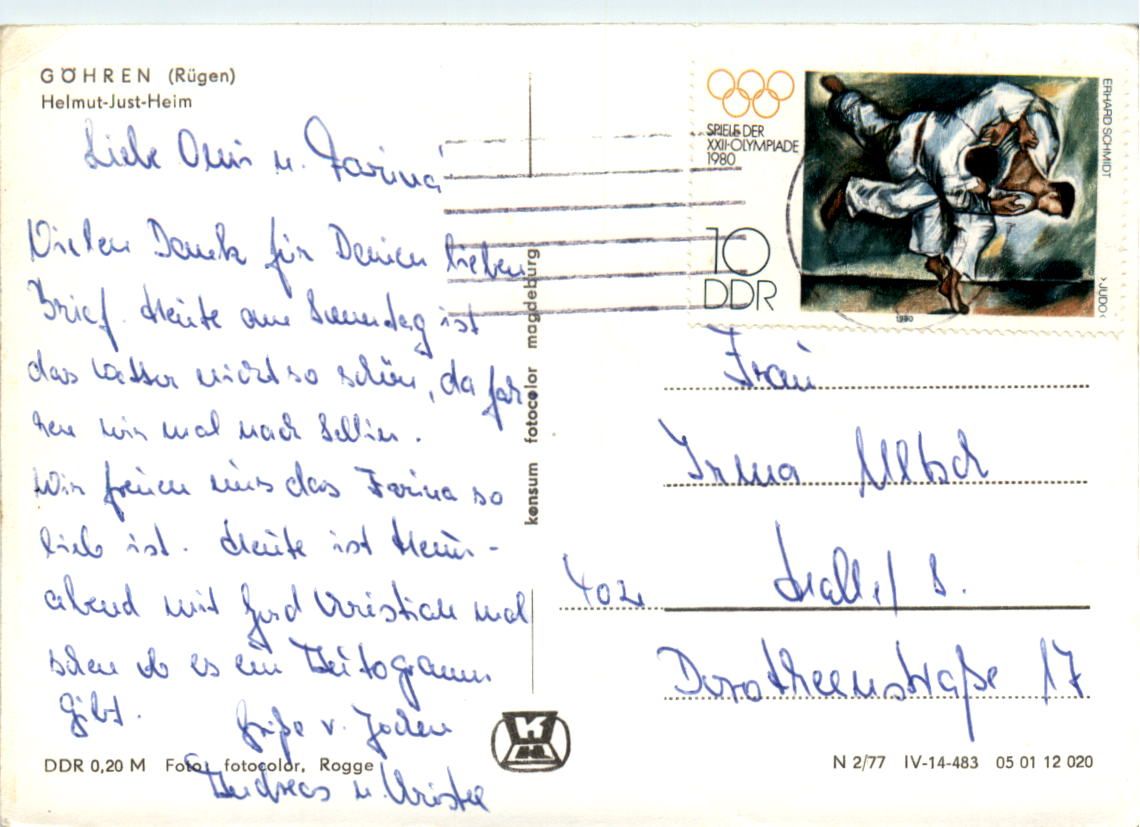 GÖHREN (Rügen)
Helmut-Just-Heim
Liebe Omi u. Farina
Vielen Dank für Deinen lieben
Brief. Heute am Sonntag ist
das Wetter nicht so schön, da fah
ren wir mal nach Sellin.
Wir freuen uns das Farina so
lieb ist. Heute ist
abend mit Gerd Christian mal
sehen ob es ein Autogramm
gibt.
Grüße v. Jochen
Andreas u. Christel
DDR 0,20 M Foto: fotocolor, Rogge
konsum fotocolor magdeburg
SPIELE DER
XXII·OLYMPIADE
1980
10
DDR
ERHARD SCHMIDT
›JUDO‹
1980
Frau
Irma
402 Halle/S.
Dorotheenstraße 17
N 2/77 IV-14-483 05 01 12 020